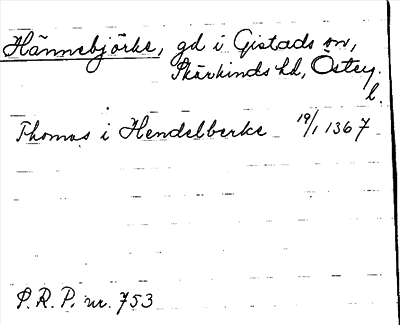 Hännebjörke, gd i Gistads sn,
Skärkinds hd, Östg.
l.
Thomas i Hendelberke 19/1 1367
P.R.P. nr. 753